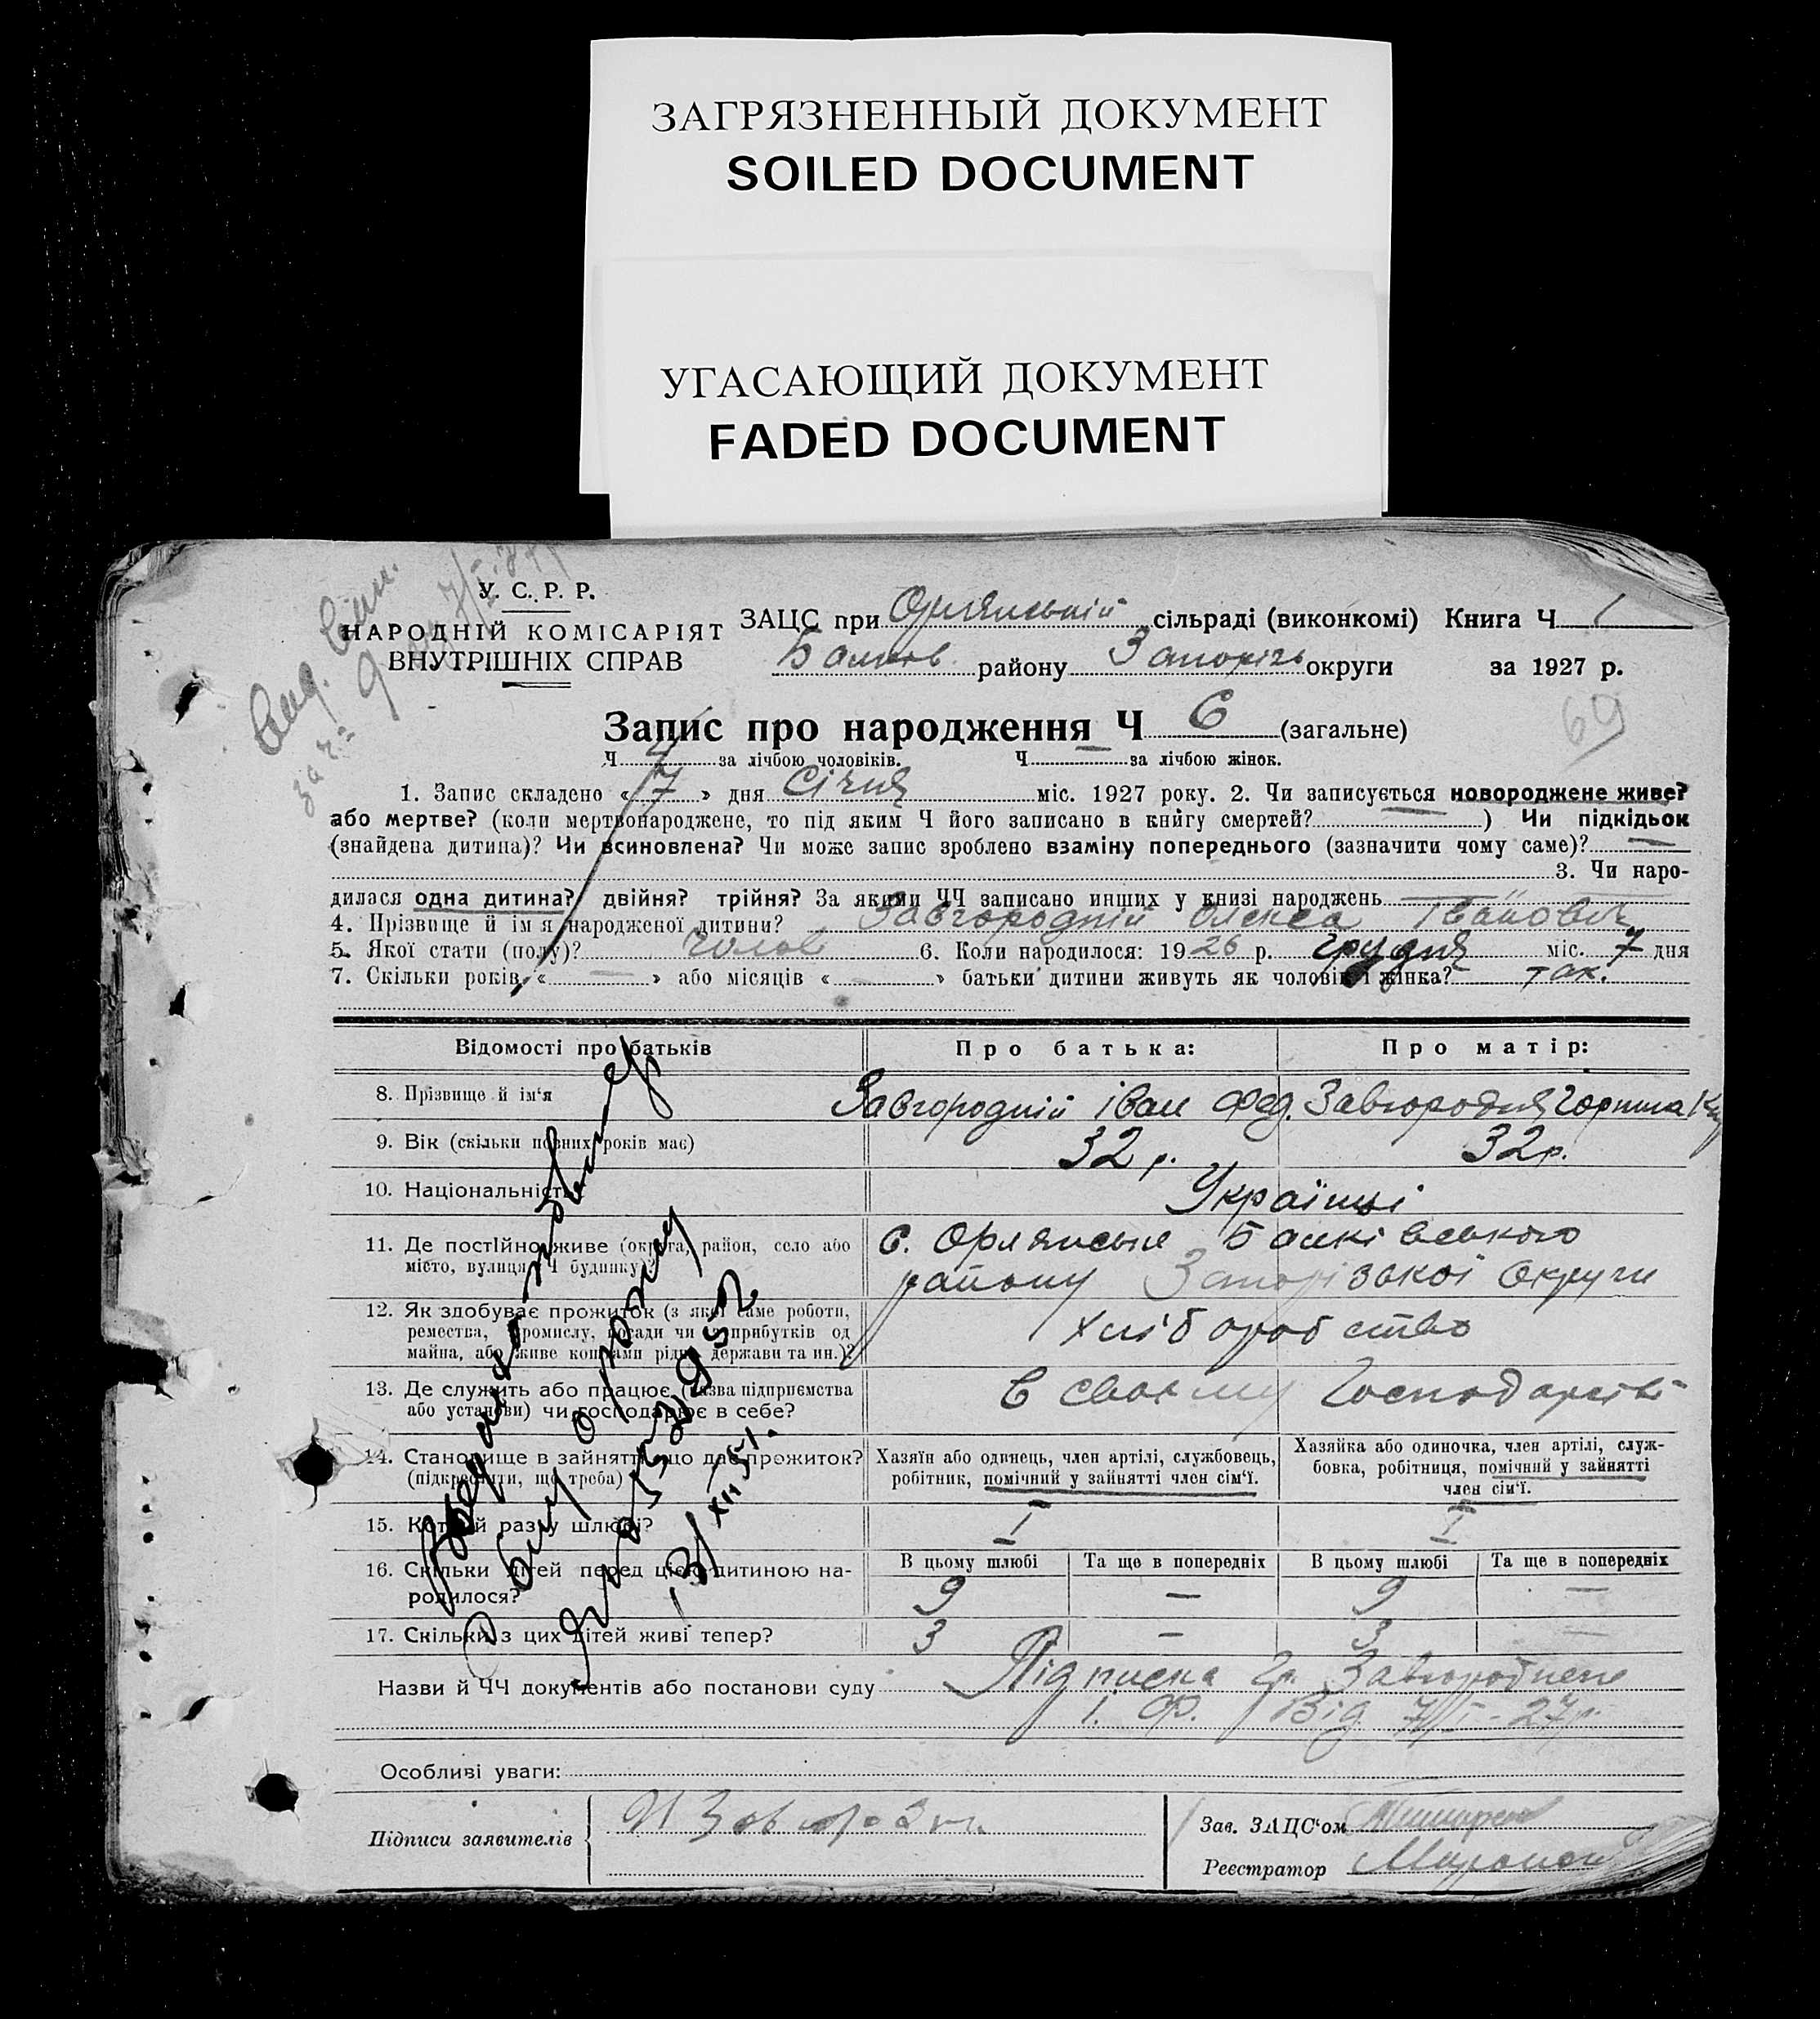 ЗАГРЯЗНЕННЫЙ ДОКУМЕНТ
SOILED DOCUMENT
УГАСАЮЩИЙ ДОКУМЕНТ
FADED DOCUMENT
У. С. Р. Р.
НАРОДНІЙ КОМІСАРІЯТ
ВНУТРІШНІХ СПРАВ
Вид. Свид.
за ч. 9
ЗАЦС при Орлянській сільраді (виконкомі) Книга Ч 1
Балков району Запоріз округи за 1927 р.
69
Запис про народження Ч 6 (загальне)
Ч 4 за лічбою чоловіків. Ч — за лічбою жінок.
1. Запис складено « 7 » дня Січня міс. 1927 року. 2. Чи записується новороджене живе?
або мертве? (коли мертвонароджене, то під яким Ч його записано в книгу смертей? — ) Чи підкідьок
(знайдена дитина)? Чи всиновлена? Чи може запис зроблено взаміну попереднього (зазначити чому саме)? —
3. Чи наро-
дилася одна дитина? двійня? трійня? За якими ЧЧ записано инших у книзі народжень —
4. Прізвище й ім'я народженої дитини? Завгородній Олекса Іванович
5. Якої стати (полу)? чолов 6. Коли народилося: 1926 р. грудня міс. 7 дня
7. Скільки років « — » або місяців « — » батьки дитини живуть як чоловік і жінка? так.
Відомості про батьків Про батька: Про матір:
8. Прізвище й ім'я Завгородній Іван Фед. Завгородня Горпина
9. Вік (скільки повних років має) 32 р. 32 р.
10. Національність Українці
11. Де постійно живе (округа, район, село або С. Орлянське Балківського
місто, вулиця, Ч будинку)? району Запорізкої Округи
12. Як здобуває прожиток (з якої саме роботи,
ремества, промислу, посади чи з прибутків од хліборобство
майна, або живе коштами рідні, держави та ин.)?
13. Де служить або працює (назва підприємства В своєму Господарстві
або установи) чи господарює в себе?
14. Становище в зайнятті, що дає прожиток? Хазяїн або одинець, член артілі, службовець, Хазяйка або одиночка, член артілі, служ-
(підкреслити, що треба) робітник, помічний у зайнятті член сім'ї. бовка, робітниця, помічний у зайнятті
член сім'ї.
15. Котрий раз у шлюбі? I I
16. Скільки дітей перед цією дитиною на- В цьому шлюбі Та ще в попередніх В цьому шлюбі Та ще в попередніх
родилося? 9 — 9 —
17. Скільки з цих дітей живі тепер? 3 — 3 —
Назви й ЧЧ документів або постанови суду Підписка гр. Завгороднего
І. Ф. Від 7/I-27р.
Особливі уваги:
Підписи заявителів
Зав. ЗАЦС'ом
Реєстратор